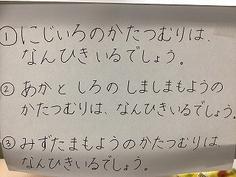 ① にじいろのかたつむりは、
なんびきいるでしょう。
② あかと しろの しましまもようの
かたつむりは、なんびきいるでしょう。
③ みずたまもようのかたつむりは、
なんびきいるでしょう。